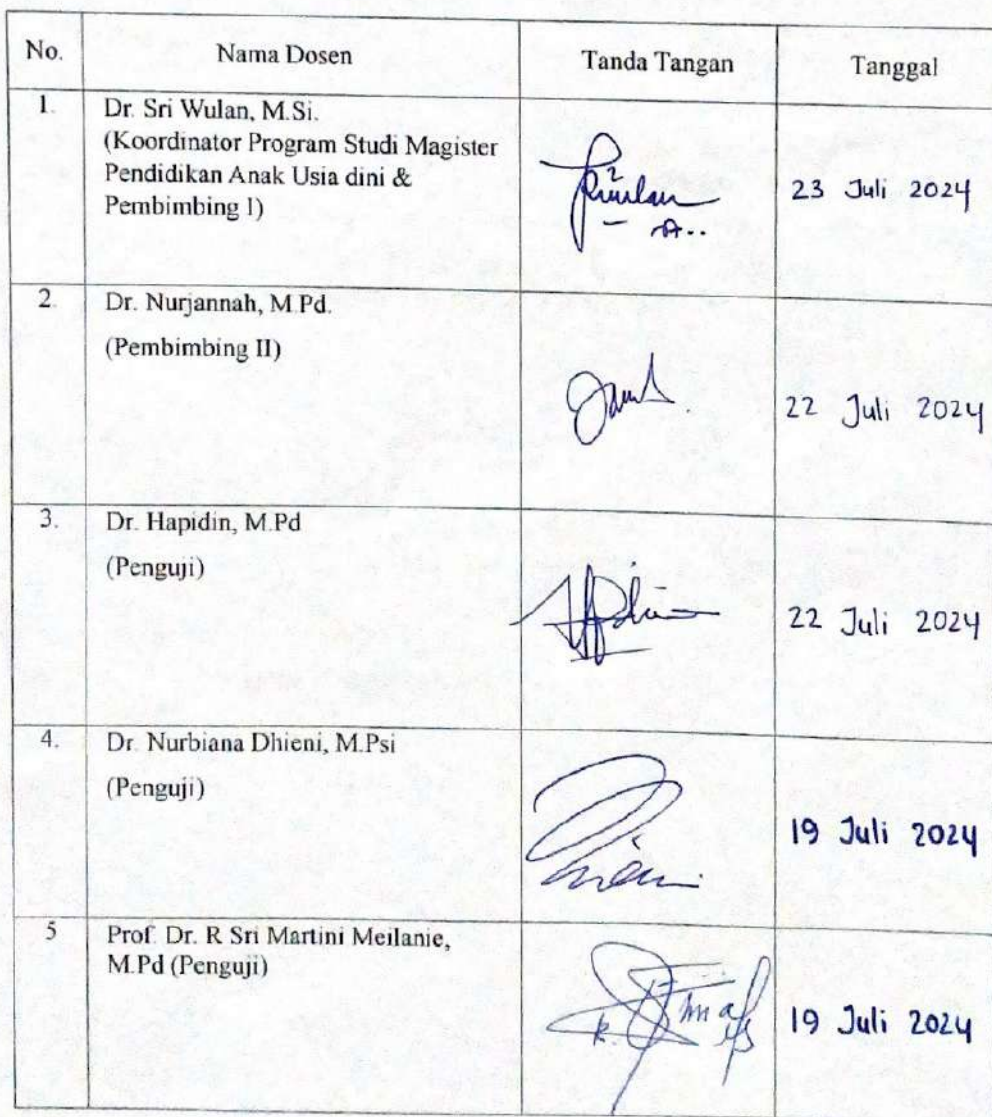 No. Nama Dosen Tanda Tangan Tanggal
1. Dr. Sri Wulan, M.Si.
(Koordinator Program Studi Magister
Pendidikan Anak Usia dini &
Pembimbing I)
23 Juli 2024
2. Dr. Nurjannah, M.Pd.
(Pembimbing II)
22 Juli 2024
3. Dr. Hapidin, M.Pd
(Penguji)
22 Juli 2024
4. Dr. Nurbiana Dhieni, M.Psi
(Penguji)
19 Juli 2024
5 Prof. Dr. R Sri Martini Meilanie,
M.Pd (Penguji)
19 Juli 2024